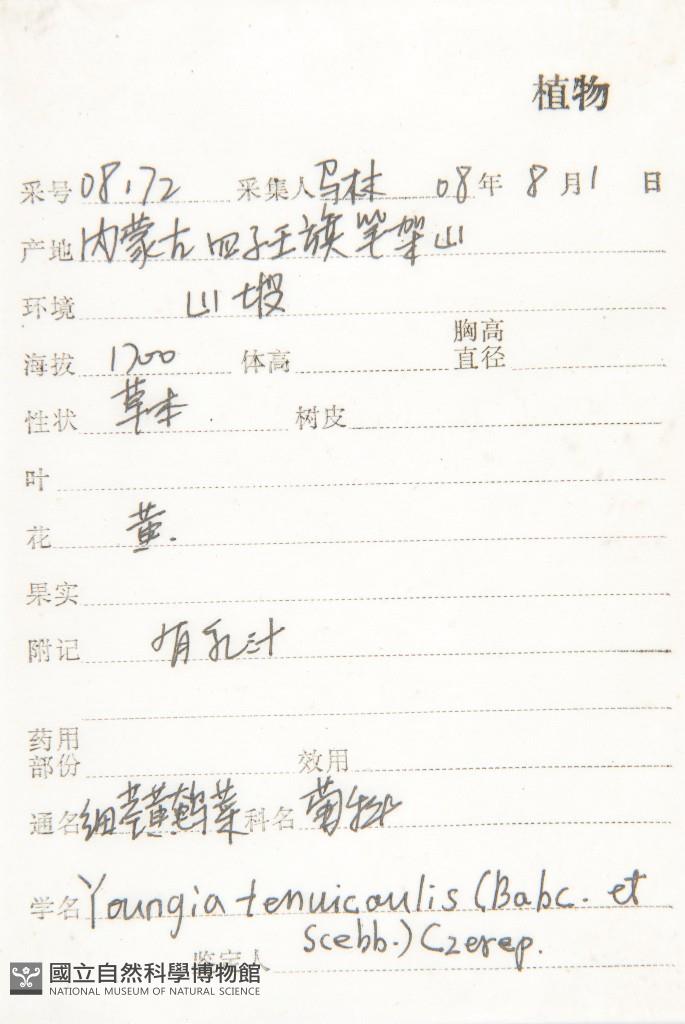 植物
采号 08172 采集人 马林 08年 8月1日
产地 内蒙古四子王旗笔架山
环境 山坡
海拔 1700 体高 胸高直径
性状 草本 树皮
叶
花 黄.
果实
附记 有乳汁
药用部份 效用
通名 细茎黄鹌菜 科名 菊科
学名 Youngia tenuicaulis (Babc. et
Scebb.) Czerep.
鉴定人
國立自然科學博物館
NATIONAL MUSEUM OF NATURAL SCIENCE